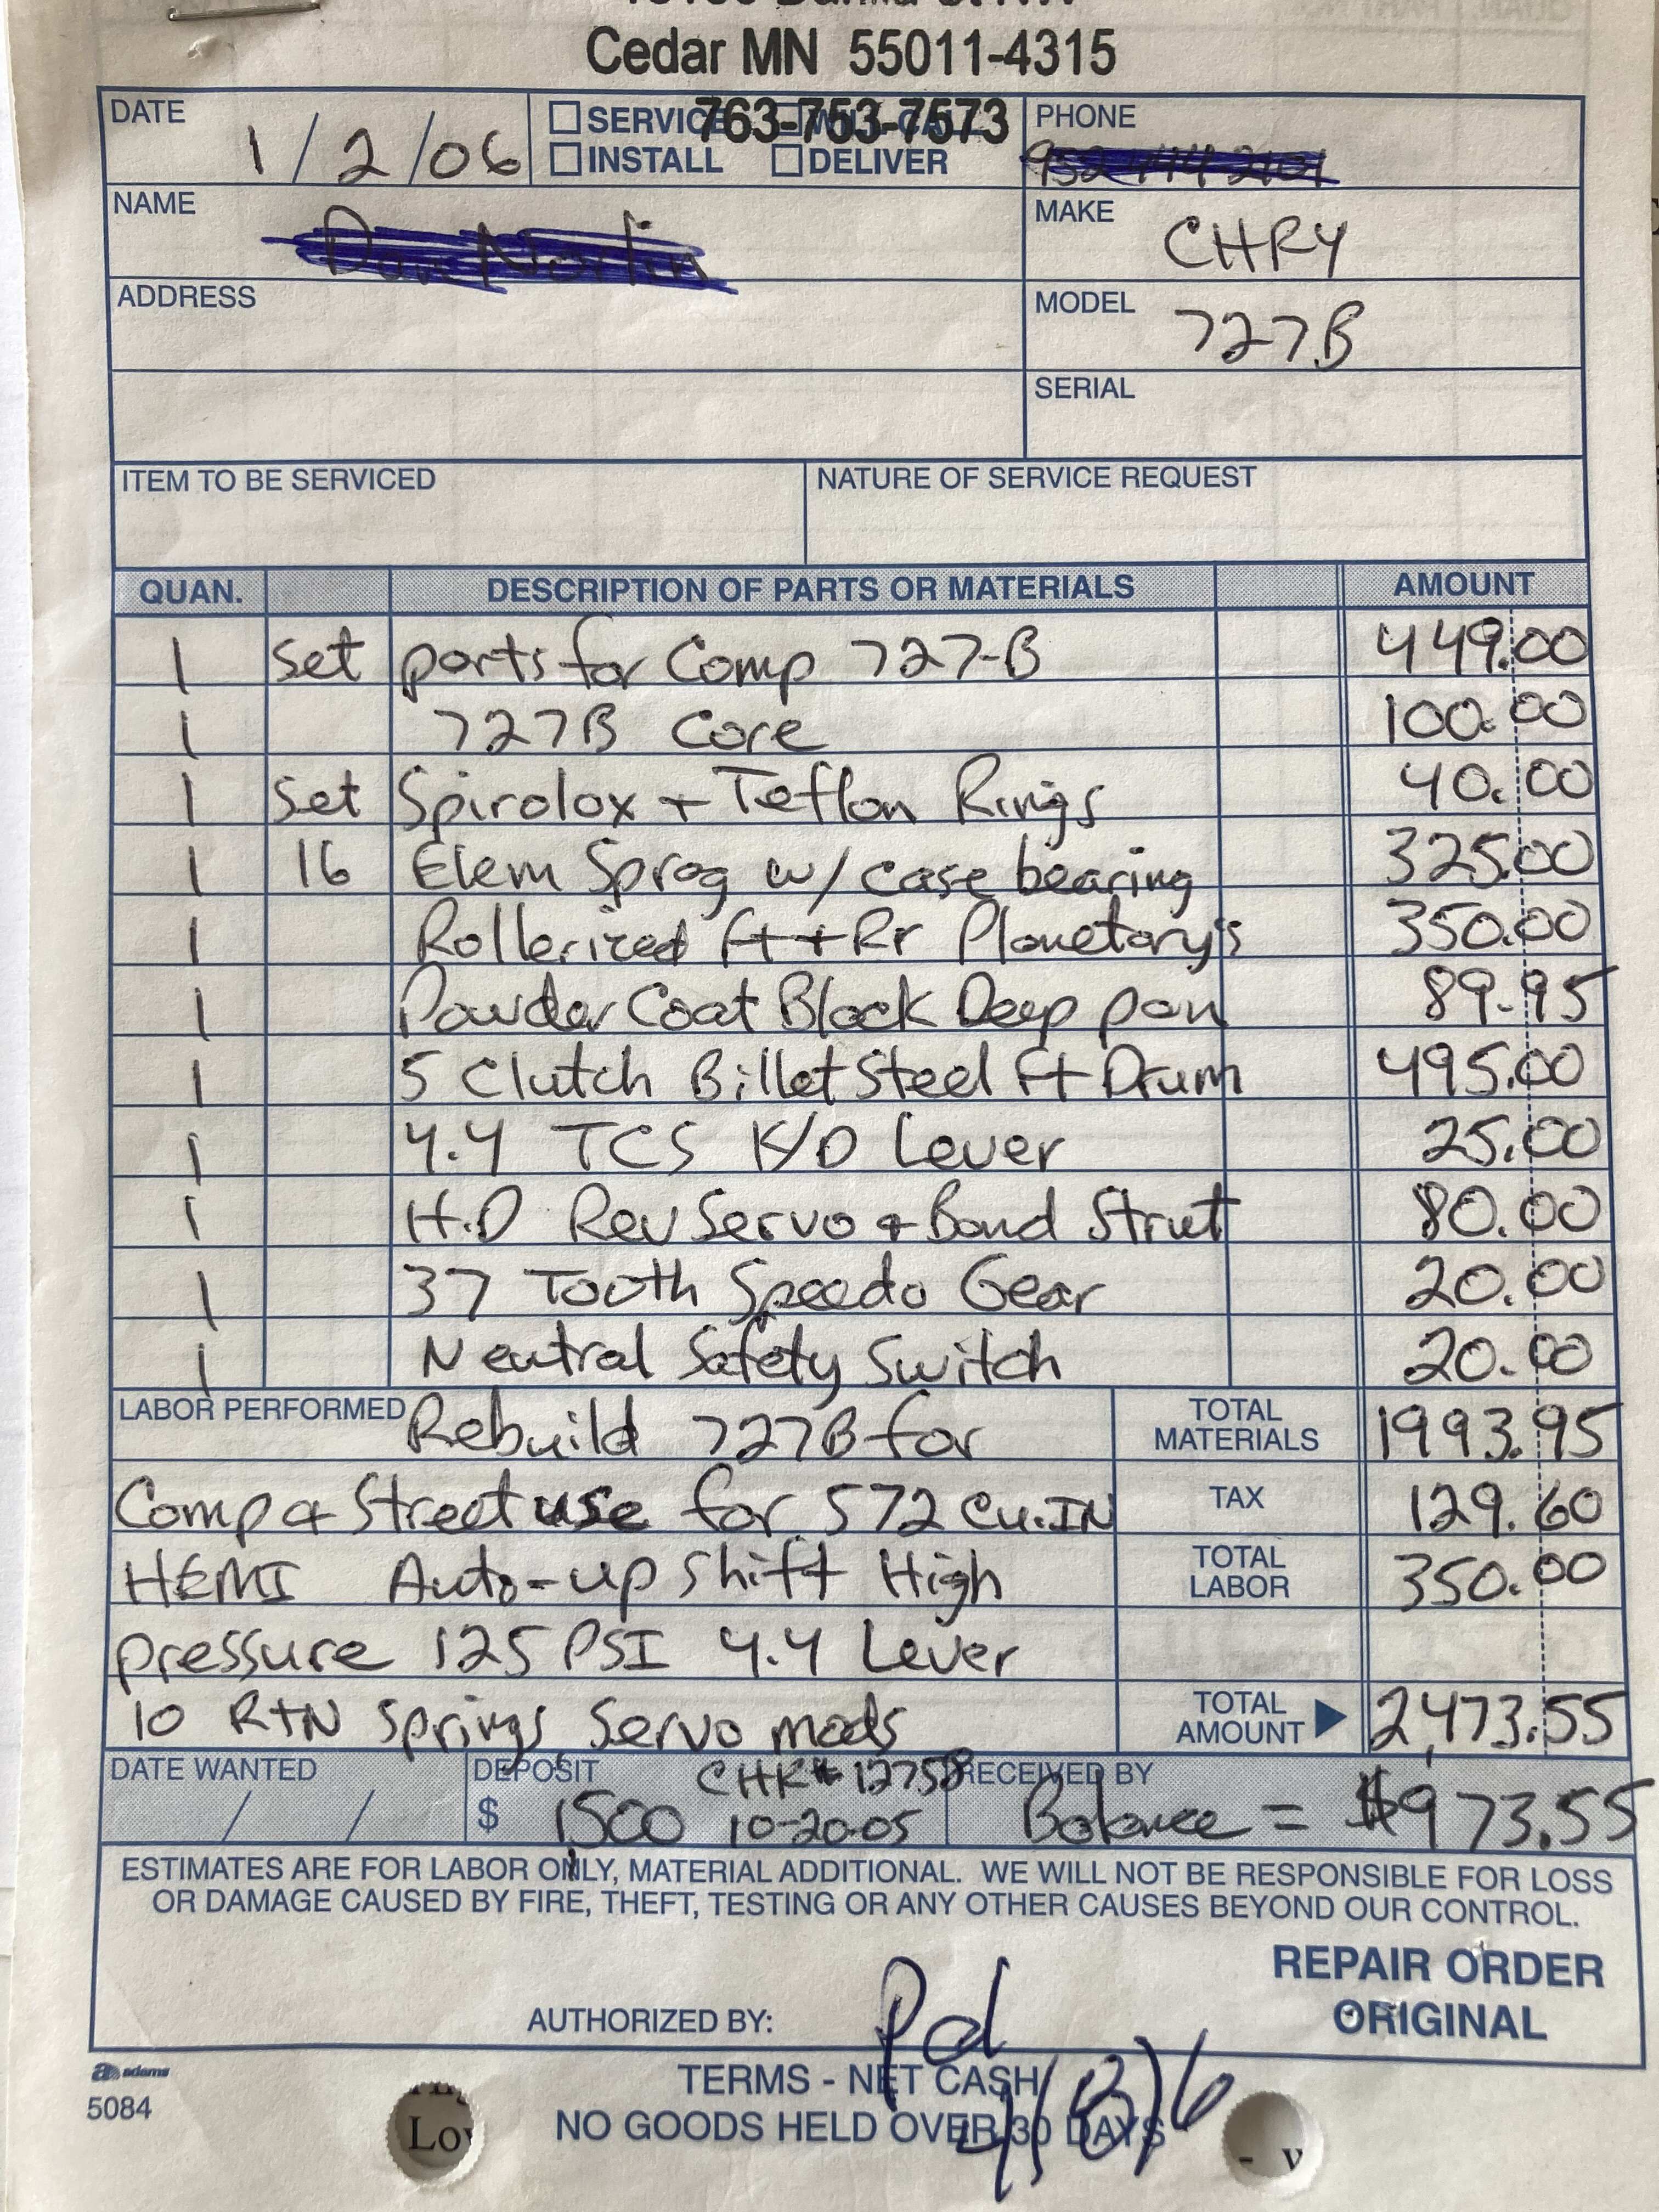 Cedar MN 55011-4315
763-753-7573
DATE 1/2/06
SERVICE
INSTALL DELIVER
PHONE
NAME
MAKE CHRY
ADDRESS
MODEL 727B
SERIAL
ITEM TO BE SERVICED NATURE OF SERVICE REQUEST
QUAN. DESCRIPTION OF PARTS OR MATERIALS AMOUNT
1 set parts for Comp 727-B 449.00
1 727B Core 100.00
1 Set Spirolox + Teflon Rings 40.00
1 16 Elem Sprag w/ case bearing 325.00
1 Rollerized ft + Rr Planetary's 350.00
1 Powder Coat Black Deep pan 89.95
1 5 Clutch Billet Steel ft Drum 495.00
1 4.4 TCS K/D Lever 25.00
1 H.D Rev Servo & Band Strut 80.00
1 37 Tooth Speedo Gear 20.00
1 Neutral Safety Switch 20.00
LABOR PERFORMED Rebuild 727B for
TOTAL MATERIALS 1993.95
Comp & Street use for 572 Cu.IN
TAX 129.60
HEMI Auto-up shift High
TOTAL LABOR 350.00
pressure 125 PSI 4.4 Lever
10 RTN springs, Servo mods
TOTAL AMOUNT 2,473.55
DATE WANTED / /
DEPOSIT CHK# 12758
$ 1,500 10-20-05
RECEIVED BY
Balance = $973.55
ESTIMATES ARE FOR LABOR ONLY, MATERIAL ADDITIONAL. WE WILL NOT BE RESPONSIBLE FOR LOSS
OR DAMAGE CAUSED BY FIRE, THEFT, TESTING OR ANY OTHER CAUSES BEYOND OUR CONTROL.
REPAIR ORDER
ORIGINAL
AUTHORIZED BY:
Pd
adams
5084
TERMS - NET CASH
NO GOODS HELD OVER 30 DAYS